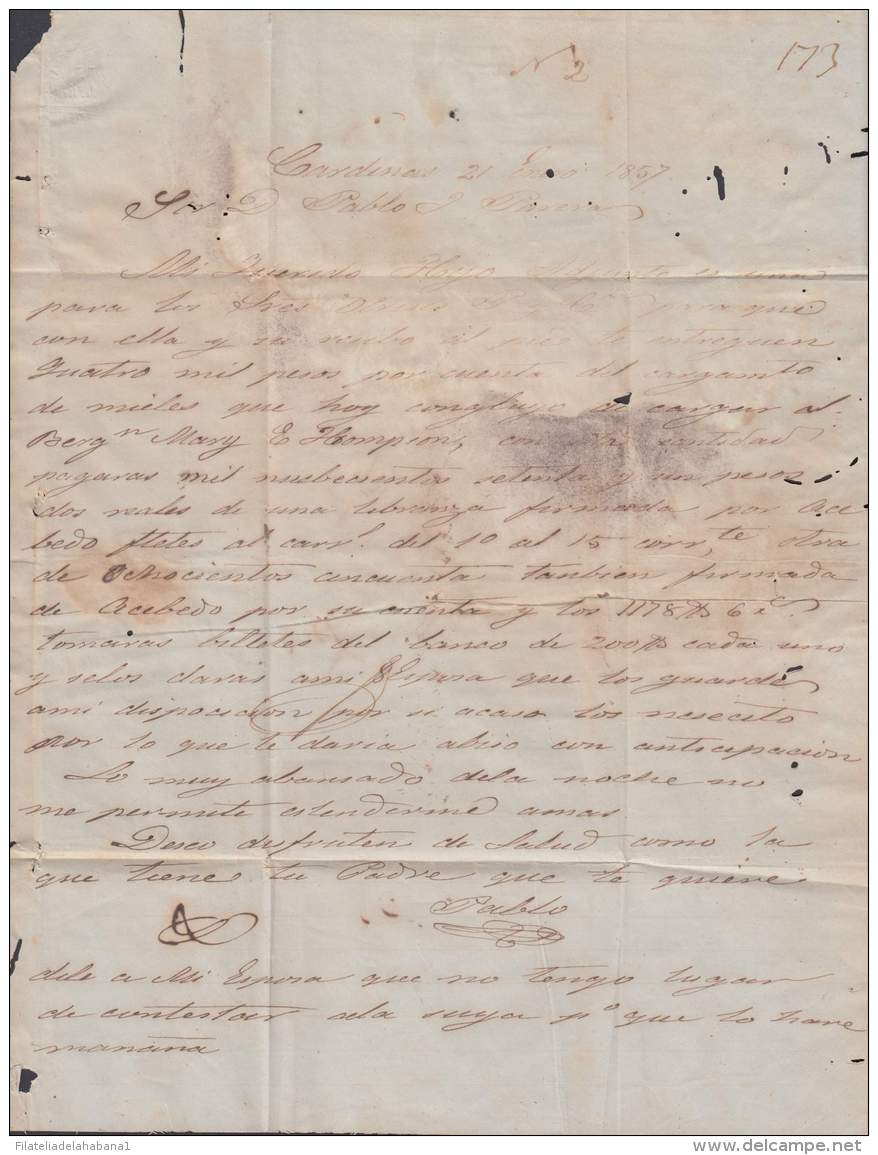 Nº 2
173
Cardenas 21 Enero 1857
Sor D Pablo J
Mi Querido Hijo Adjunto es una
para los Sres para que
con ella y su recibo al pie te entreguen
Quatro mil pesos por cuenta del cargamto
de mieles que hoy concluyo de cargar al
Bergn Mary E Hompson, con cantidad
pagaras mil nuebecientos setenta y un pesos
dos reales de una libranza firmada por Ace
bedo fletes al carrl. del 1º al 15 corrte, otra
de Ochocientos cincuenta tanbien firmada
de Acebedo por su cuenta y los 1178 $ 6 
tomaras billetes del banco de 200 $ cada uno
y selos daras ami Espora que los guarde
ami disposicion por si acaso los nesecito
por lo que te daria abiso con anticipacion
Lo muy abansado dela noche no
me permite estenderme amas
Deseo disfruten de Salud como la
que tiene tu Padre que te quiere
Pablo
dile a Mi Espora que no tengo lugar
de contestar ala suya po que lo hare
mañana
Filateliadelahabana1
www.delcampe.net